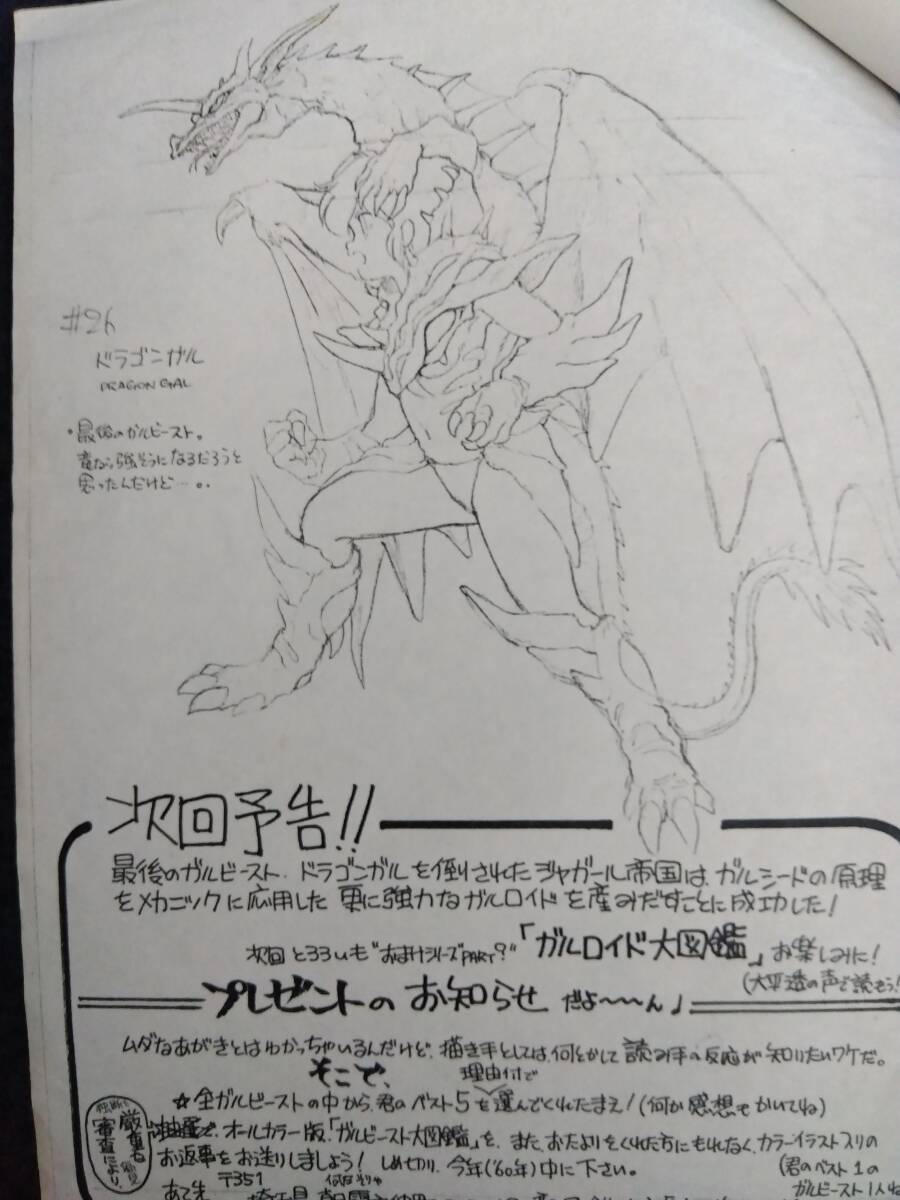 #26
ドラゴンガル
DRAGON GAL
・最後のガルビースト。
竜なら強そうになるだろうと
思ったんだけど…。.
次回予告!!
最後のガルビースト、ドラゴンガルを倒されたジャガール帝国は、ガルシードの原理
をメカニックに応用した更に強力なガルロイドを産みだすことに成功した!
次回 とろろいも"おまけシリーズPART?"「ガルロイド大図鑑」お楽しみに!
(大平透の声で読もう!
プレゼントのお知らせ だよ〜〜〜ん」
ムダなあがきとはわかっちゃいるんだけど、描き手としては、何とかして読み手の反応が知りたいワケだ。
そこで、 理由付で
☆全ガルビーストの中から、君のベスト5を選んでくれたまえ!(何か感想もかいてね)
独断と偏見 厳重な審査により、
抽選で、オールカラー版「ガルビースト大図鑑」を、また、おたよりをくれた方にもれなく、カラーイラスト入りの
お返事をお送りしましょう! しめ切り、今年('60年)中に下さい。
(君のベスト1の
ガルビースト1人ね
あて先 〒351
埼玉県